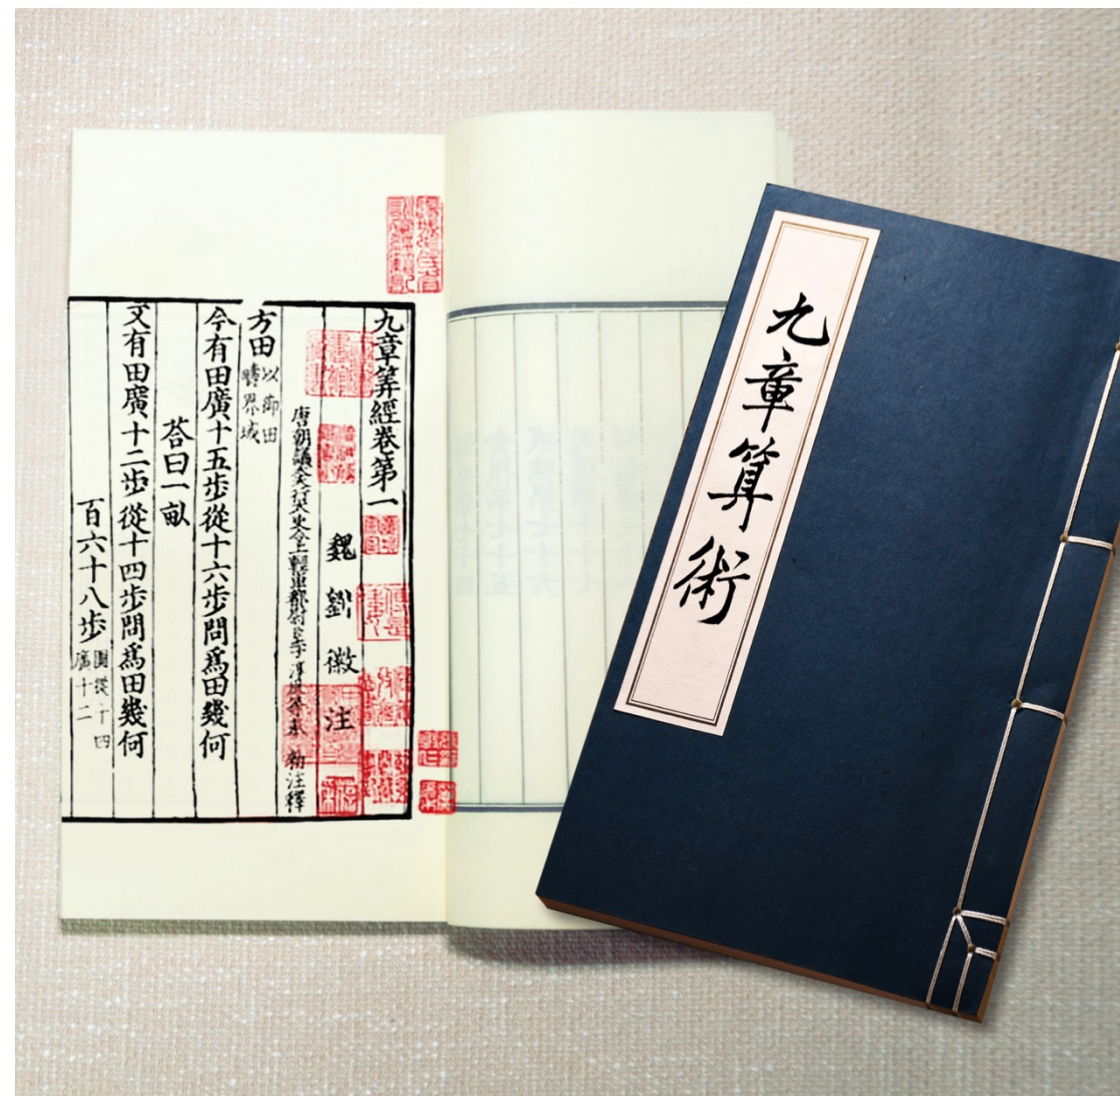 九章筭經卷第一
魏劉徽注
唐朝議大夫行太史令上輕車都尉臣李淳風等奉 勑注釋
方田以御田疇界域
今有田廣十五步從十六步問爲田幾何
荅曰一畝
又有田廣十二步從十四步問爲田幾何
百六十八步圖從十四廣十二
九章算術